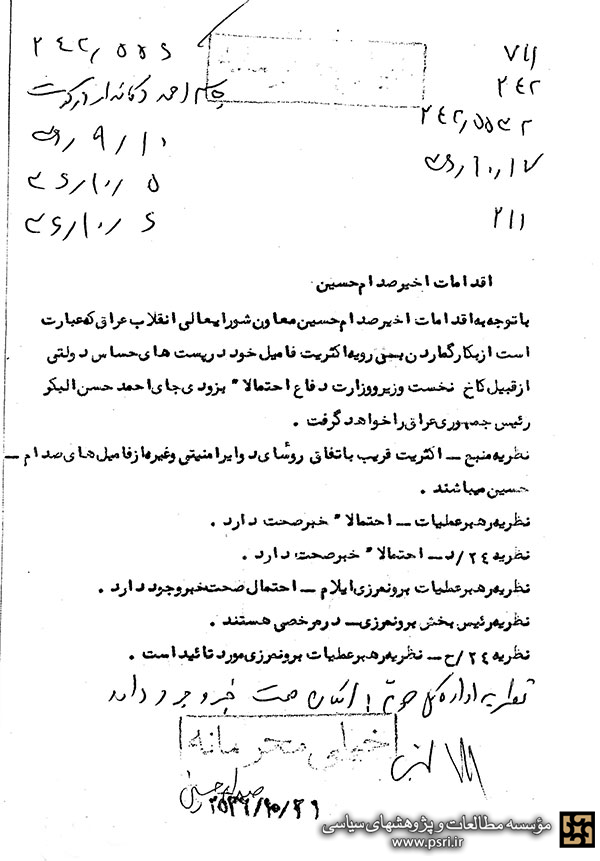 ۷۱۱
۲۴۲
۳۶/۱۰/۱۷
۲۱۱
۳۶/۹/۱۰
۳۶/۱۰/۵
۳۶/۱۰/۶
اقدامات اخیر صدام حسین
با توجه به اقدامات اخیر صدام حسین معاون شورایعالی انقلاب عراق که عبارت
است از بکار گماردن بیش رویه اکثریت فامیل خود در پست های حساس دولتی
از قبیل کاخ نخست وزیر و وزارت دفاع احتمالا" بزودی جای احمد حسن البکر
رئیس جمهوری عراق را خواهد گرفت .
نظریه منبع ـ اکثریت قریب باتفاق روسای دوایر امنیتی و غیره از فامیل های صدام ـ
حسین میباشند .
نظریه رهبر عملیات ـ احتمالا" خبر صحت دارد .
نظریه ۲۴/د ـ احتمالا" خبر صحت دارد .
نظریه رهبر عملیات برونمرزی ایلام ـ احتمال صحت خبر وجود دارد .
نظریه رئیس بخش برونمرزی ـ در مرخصی هستند .
نظریه ۲۴/ح ـ نظریه رهبر عملیات برونمرزی مورد تائید است .
نظریه اداره کل امکان صحت خبر وجود دارد
خیلی محرمانه
۲۵۳۶/۱۰/۲۹
مؤسسه مطالعات و پژوهشهای سیاسی
www.psri.ir